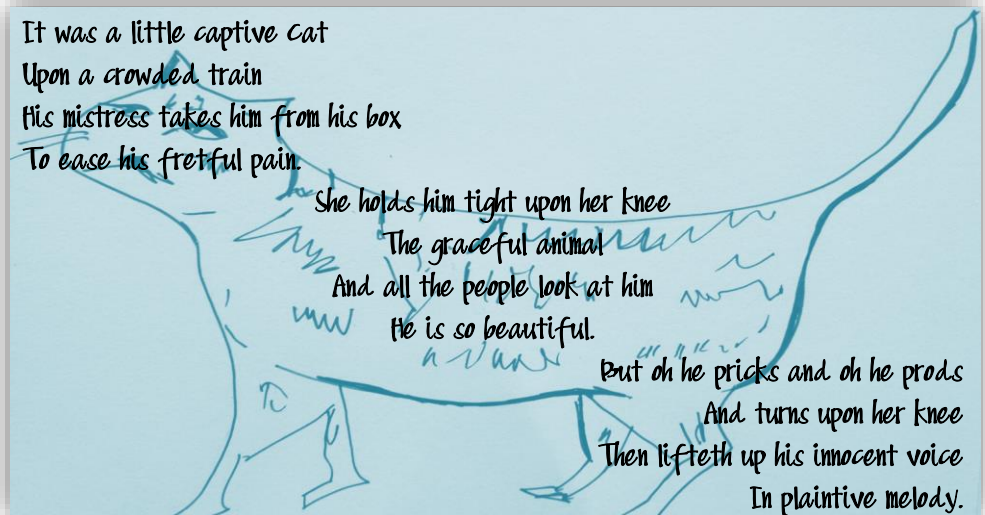 It was a little captive Cat
Upon a crowded train
His mistress takes him from his box
To ease his fretful pain.
She holds him tight upon her knee
The graceful animal
And all the people look at him
He is so beautiful.
But oh he pricks and oh he prods
And turns upon her knee
Then lifteth up his innocent voice
In plaintive melody.